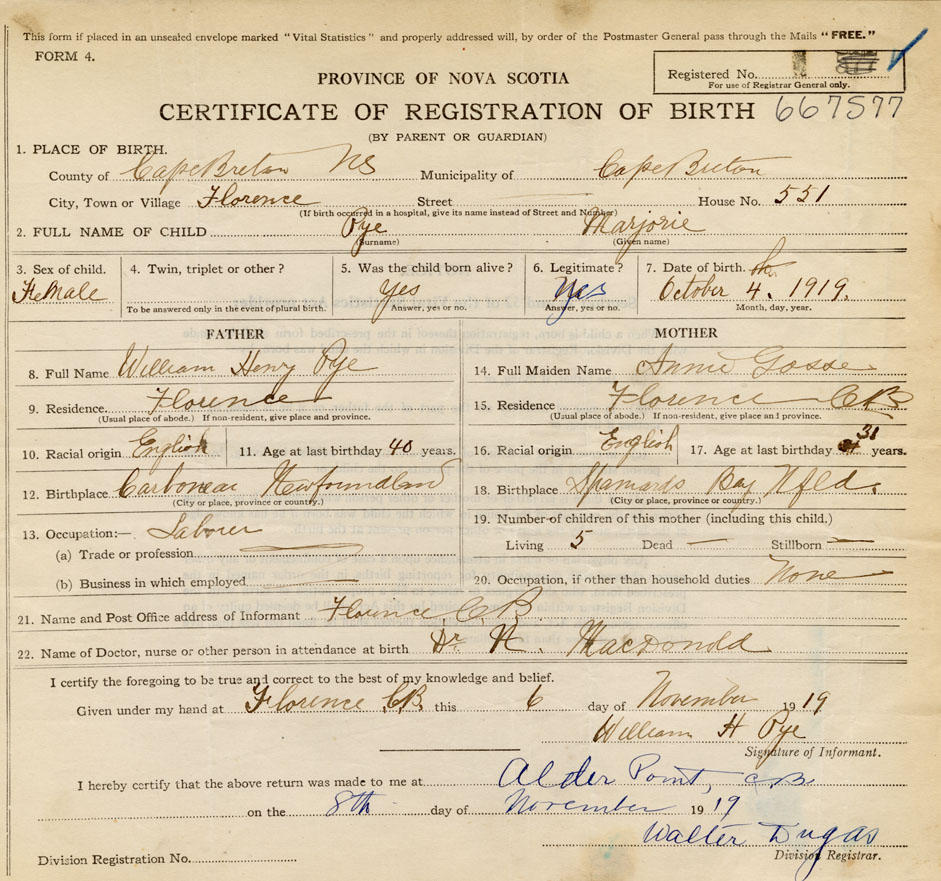 This form if placed in an unsealed envelope marked "Vital Statistics" and properly addressed will, by order of the Postmaster General pass through the Mails "FREE."
FORM 4.
PROVINCE OF NOVA SCOTIA
Registered No.
For use of Registrar General only.
CERTIFICATE OF REGISTRATION OF BIRTH 667577
(BY PARENT OR GUARDIAN)
1. PLACE OF BIRTH.
County of Cape Breton NS Municipality of Cape Breton
City, Town or Village Florence Street House No. 551
(If birth occurred in a hospital, give its name instead of Street and Number)
2. FULL NAME OF CHILD Pye Marjorie
(Surname) (Given name)
3. Sex of child. 4. Twin, triplet or other? 5. Was the child born alive? 6. Legitimate? 7. Date of birth.
FeMale Yes Yes October 4. 1919.
To be answered only in the event of plural birth. Answer, yes or no. Answer, yes or no. Month, day, year.
FATHER MOTHER
8. Full Name William Henry Pye 14. Full Maiden Name Annie Gosse
9. Residence Florence 15. Residence Florence CB
(Usual place of abode.) If non-resident, give place and province. (Usual place of abode.) If non-resident, give place and province.
10. Racial origin English 11. Age at last birthday 40 years. 16. Racial origin English 17. Age at last birthday 31 years.
12. Birthplace Carbonear Newfoundland 18. Birthplace Spaniards Bay Nfld.
(City or place, province or country.) (City or place, province or country.)
13. Occupation:— Laborer 19. Number of children of this mother (including this child.)
(a) Trade or profession Living 5 Dead — Stillborn —
(b) Business in which employed 20. Occupation, if other than household duties None
21. Name and Post Office address of Informant Florence, C.B.
22. Name of Doctor, nurse or other person in attendance at birth Dr N. MacDonald
I certify the foregoing to be true and correct to the best of my knowledge and belief.
Given under my hand at Florence CB. this 6 day of November 1919
William H Pye
Signature of Informant.
I hereby certify that the above return was made to me at Alder Point, CB
on the 8th day of November 1919
Walter Dugas
Division Registrar.
Division Registration No.